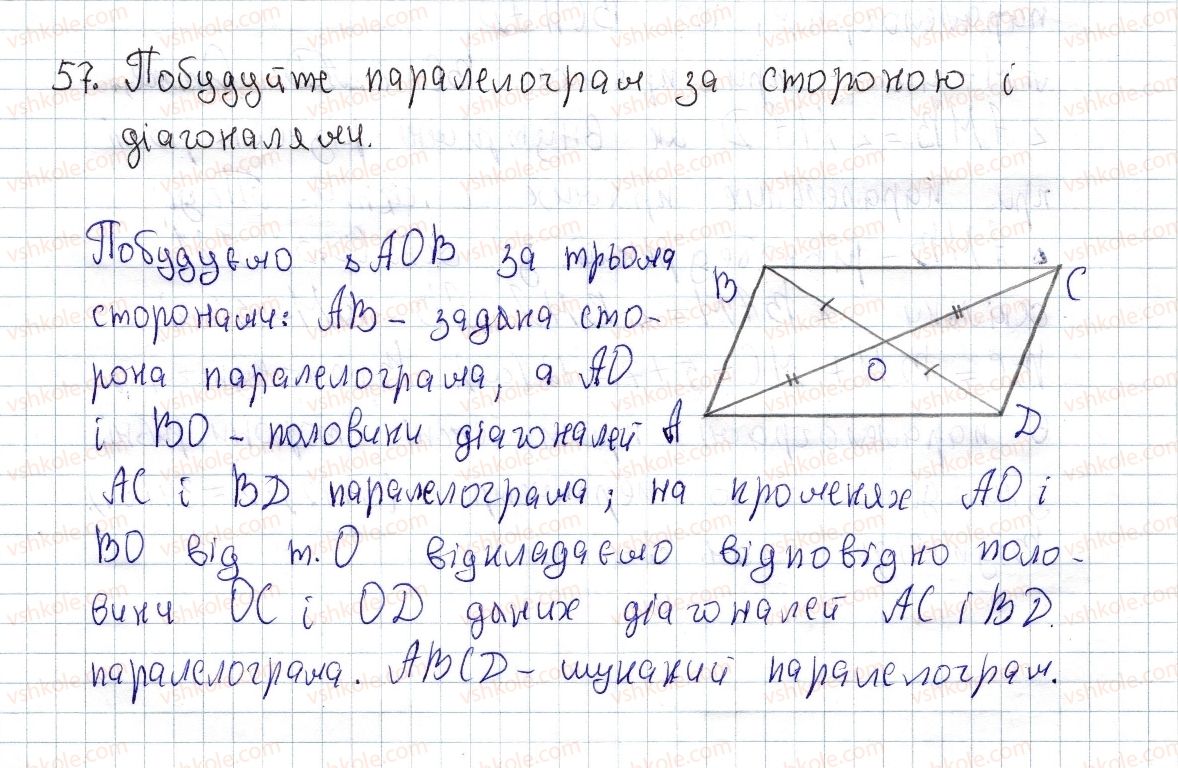 57. Побудуйте паралелограм за стороною і
діагоналями.
Побудуємо ΔAOB за трьома
сторонами: AB – задана сто-
рона паралелограма, а AO
і BO – половини діагоналей
AC і BD паралелограма; на променях AO і
BO від т. O відкладаємо відповідно поло-
вини OC і OD даних діагоналей AC і BD.
паралелограма. ABCD – шуканий паралелограм.
B
C
O
A
D
vshkole.com